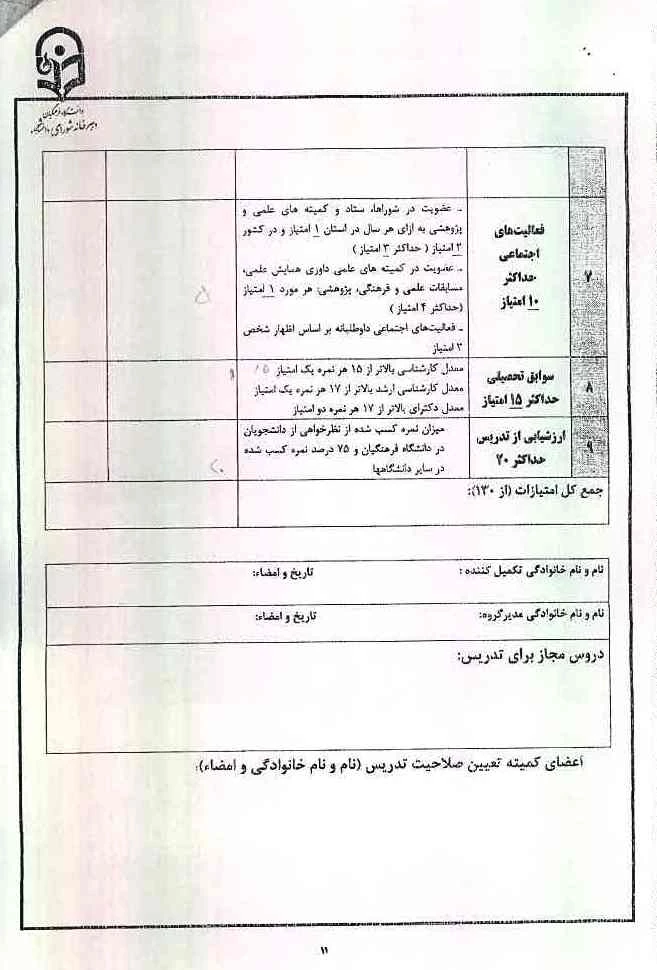 دانشگاه فرهنگیان
دبیرخانه شورای دانشگاه
۷
فعالیت‌های
اجتماعی
حداکثر
۱۰ امتیاز
ـ عضویت در شوراها، ستاد و کمیته های علمی و
پژوهشی به ازای هر سال در استان ۱ امتیاز و در کشور
۲ امتیاز ( حداکثر ۳ امتیاز )
ـ عضویت در کمیته های علمی داوری همایش علمی،
مسابقات علمی و فرهنگی، پژوهشی: هر مورد ۱ امتیاز
(حداکثر ۴ امتیاز )
ـ فعالیت‌های اجتماعی داوطلبانه بر اساس اظهار شخص
۳ امتیاز
۵
۸
سوابق تحصیلی
حداکثر ۱۵ امتیاز
معدل کارشناسی بالاتر از ۱۵ هر نمره یک امتیاز
معدل کارشناسی ارشد بالاتر از ۱۷ هر نمره یک امتیاز
معدل دکترای بالاتر از ۱۷ هر نمره دو امتیاز
۹
ارزشیابی از تدریس
حداکثر ۲۰
میزان نمره کسب شده از نظرخواهی از دانشجویان
در دانشگاه فرهنگیان و ۷۵ درصد نمره کسب شده
در سایر دانشگاهها
۲۰
جمع کل امتیازات (از ۱۳۰):
نام و نام خانوادگی تکمیل کننده : تاریخ و امضاء:
نام و نام خانوادگی مدیرگروه: تاریخ و امضاء:
دروس مجاز برای تدریس:
اعضای کمیته تعیین صلاحیت تدریس (نام و نام خانوادگی و امضاء):
۱۱